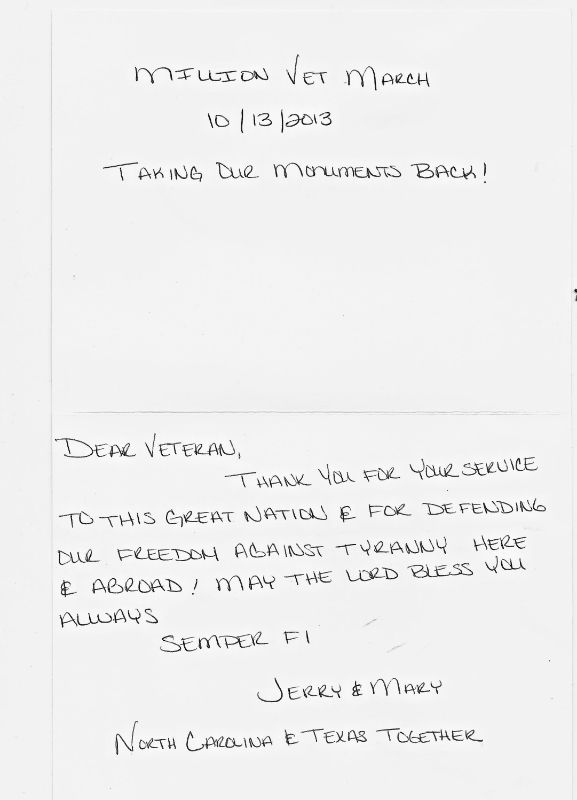 Million Vet March
10/13/2013
Taking Our Monuments Back!
Dear Veteran,
Thank you for your service
to this great nation & for defending
our freedom against tyranny here
& abroad! May the Lord bless you
always
Semper Fi
Jerry & Mary
North Carolina & Texas Together